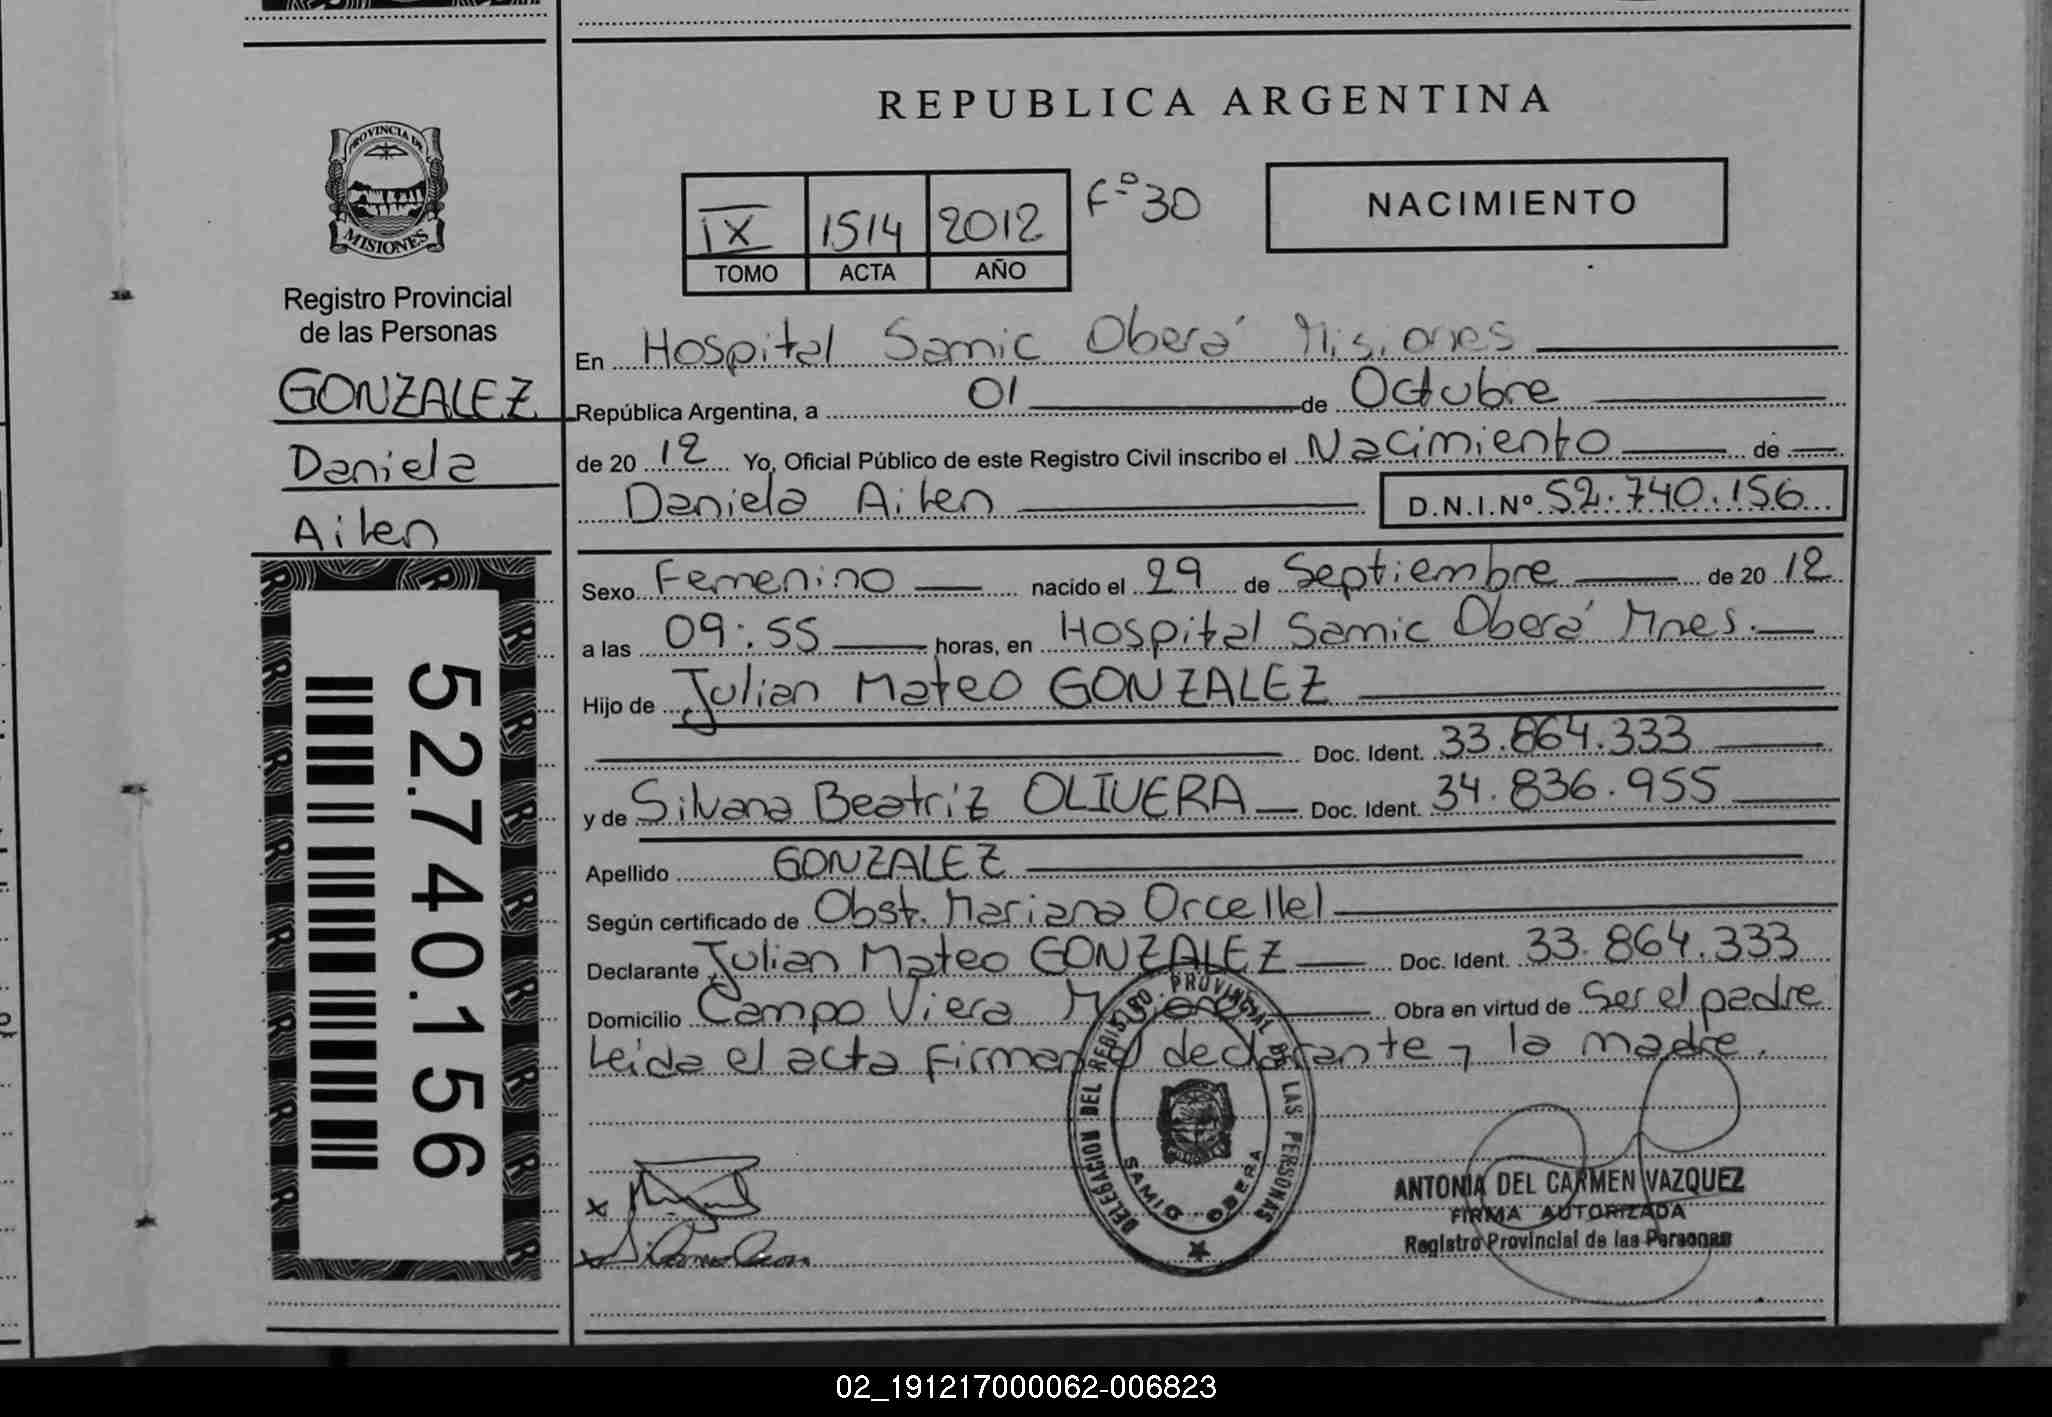 REPUBLICA ARGENTINA
PROVINCIA DE MISIONES
Registro Provincial
de las Personas
GONZALEZ
Daniela
Ailen
52.740.156
IX 1514 2012 Fº 30
TOMO ACTA AÑO
NACIMIENTO
En Hospital Samic Oberá Misiones
República Argentina, a 01 de Octubre
de 20 12 Yo, Oficial Público de este Registro Civil inscribo el Nacimiento de
Daniela Ailen D.N.I.Nº 52.740.156
Sexo Femenino nacido el 29 de Septiembre de 20 12
a las 09:55 horas, en Hospital Samic Oberá Mnes.
Hijo de Julian Mateo GONZALEZ
Doc. Ident. 33.864.333
y de Silvana Beatriz OLIVERA Doc. Ident. 34.836.955
Apellido GONZALEZ
Según certificado de Obst. Mariana Orcellel
Declarante Julian Mateo GONZALEZ Doc. Ident. 33.864.333
Domicilio Campo Viera Misiones Obra en virtud de Ser el padre
Leida el acta firman el declarante y la madre.
DELEGACION DEL REGISTRO PROVINCIAL DE LAS PERSONAS
SAMIC - OBERA
ANTONIA DEL CARMEN VAZQUEZ
FIRMA AUTORIZADA
Registro Provincial de las Personas
02_191217000062-006823